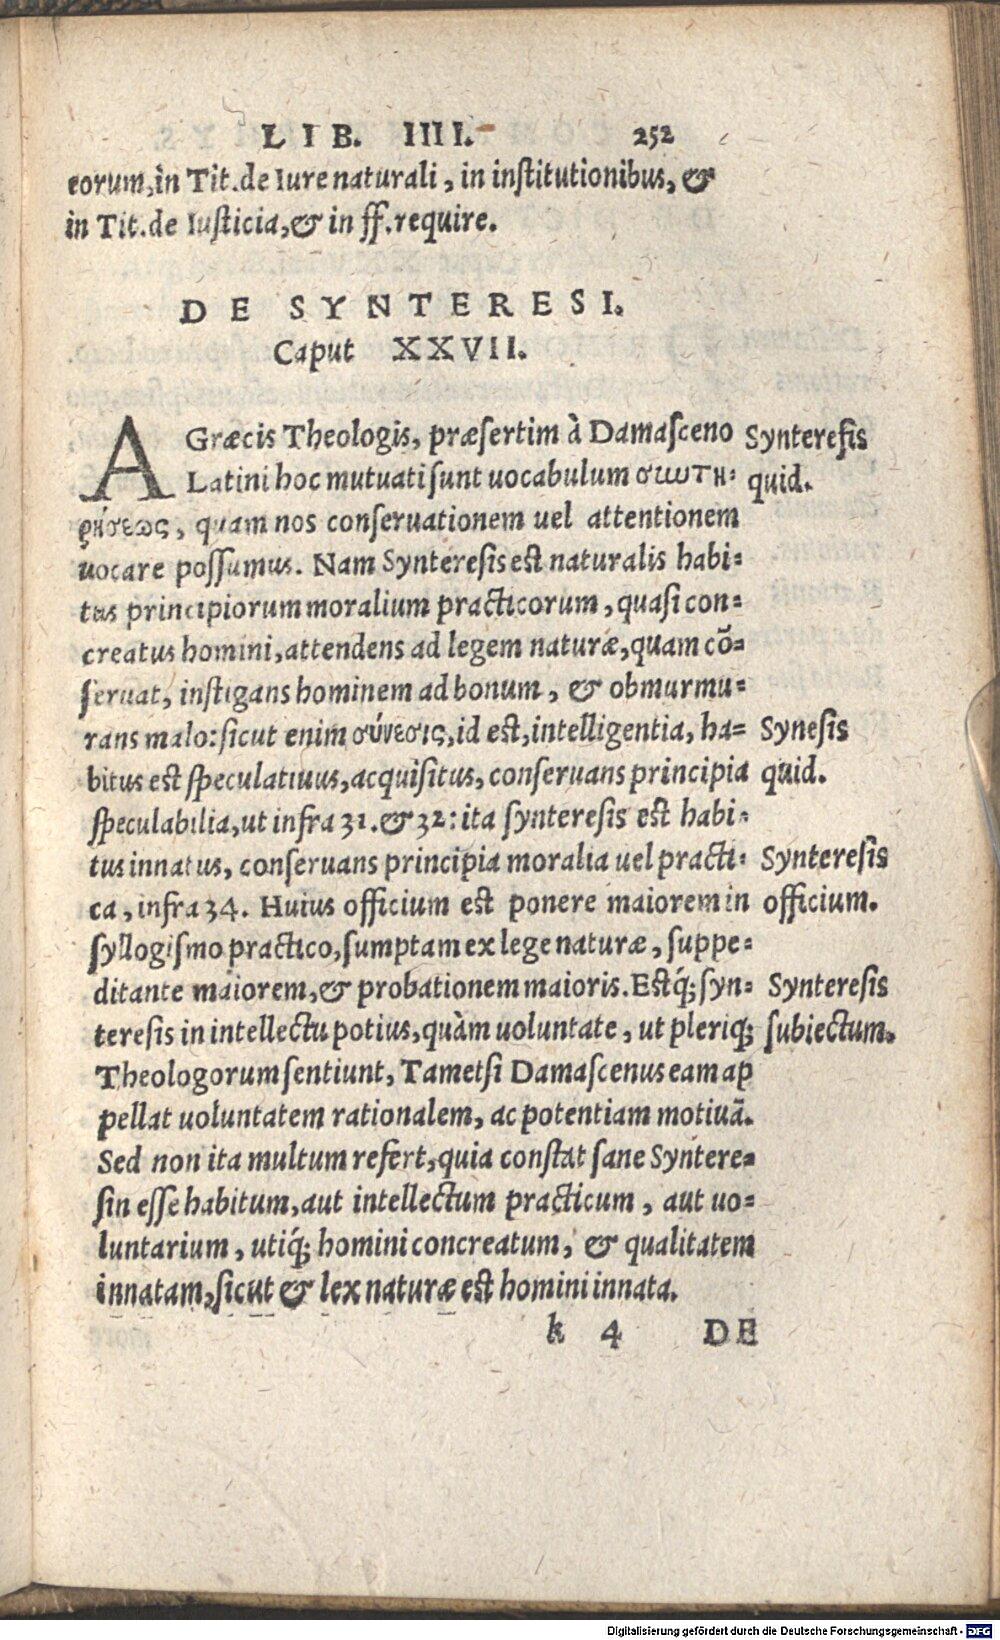 LIB. IIII. 252
eorum, in Tit. de Iure naturali, in institutionibus, &
in Tit. de Iusticia, & in ff. require.
DE SYNTERESI.
Caput XXVII.
A Græcis Theologis, præsertim à Damasceno
Synteresis
Latini hoc mutuati sunt uocabulum σωωτη-
quid.
ρήσεως, quam nos conseruationem uel attentionem
uocare possumus. Nam Synteresis est naturalis habi-
tus principiorum moralium practicorum, quasi con-
creatus homini, attendens ad legem naturæ, quam cō-
seruat, instigans hominem ad bonum, & obmurmu-
rans malo: sicut enim σύνεσις, id est, intelligentia, ha-
Synesis
bitus est speculatiuus, acquisitus, conseruans principia
quid.
speculabilia, ut infra 31. & 32: ita synteresis est habi-
tus innatus, conseruans principia moralia uel practi-
Synteresis
ca, infra 34. Huius officium est ponere maiorem in
officium.
syllogismo practico, sumptam ex lege naturæ, suppe-
ditante maiorem, & probationem maioris. Estq́; syn-
Synteresis
teresis in intellectu potius, quàm uoluntate, ut pleriq;
subiectum.
Theologorum sentiunt, Tametsi Damascenus eam ap
pellat uoluntatem rationalem, ac potentiam motiuā.
Sed non ita multum refert, quia constat sane Syntere-
sin esse habitum, aut intellectum practicum, aut uo-
luntarium, utiq́; homini concreatum, & qualitatem
innatam, sicut & lex naturæ est homini innata.
k 4 DE
Digitalisierung gefördert durch die Deutsche Forschungsgemeinschaft - DFG